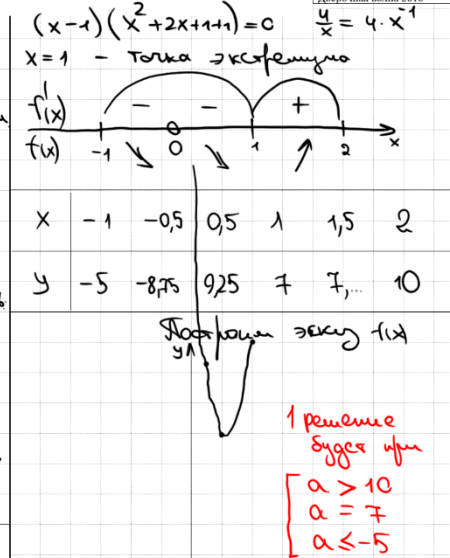 (x-1)(x²+2x+1+1)=0 4/x = 4·x⁻¹
x=1 - точка экстремума
f'(x) - - +
f(x) -1 0 1 2 x
x -1 -0,5 0,5 1 1,5 2
y -5 -8,75 9,25 7 7,... 10
Построим эскиз f(x)
y
1 решение
будет при
a > 10
a = 7
a ≤ -5